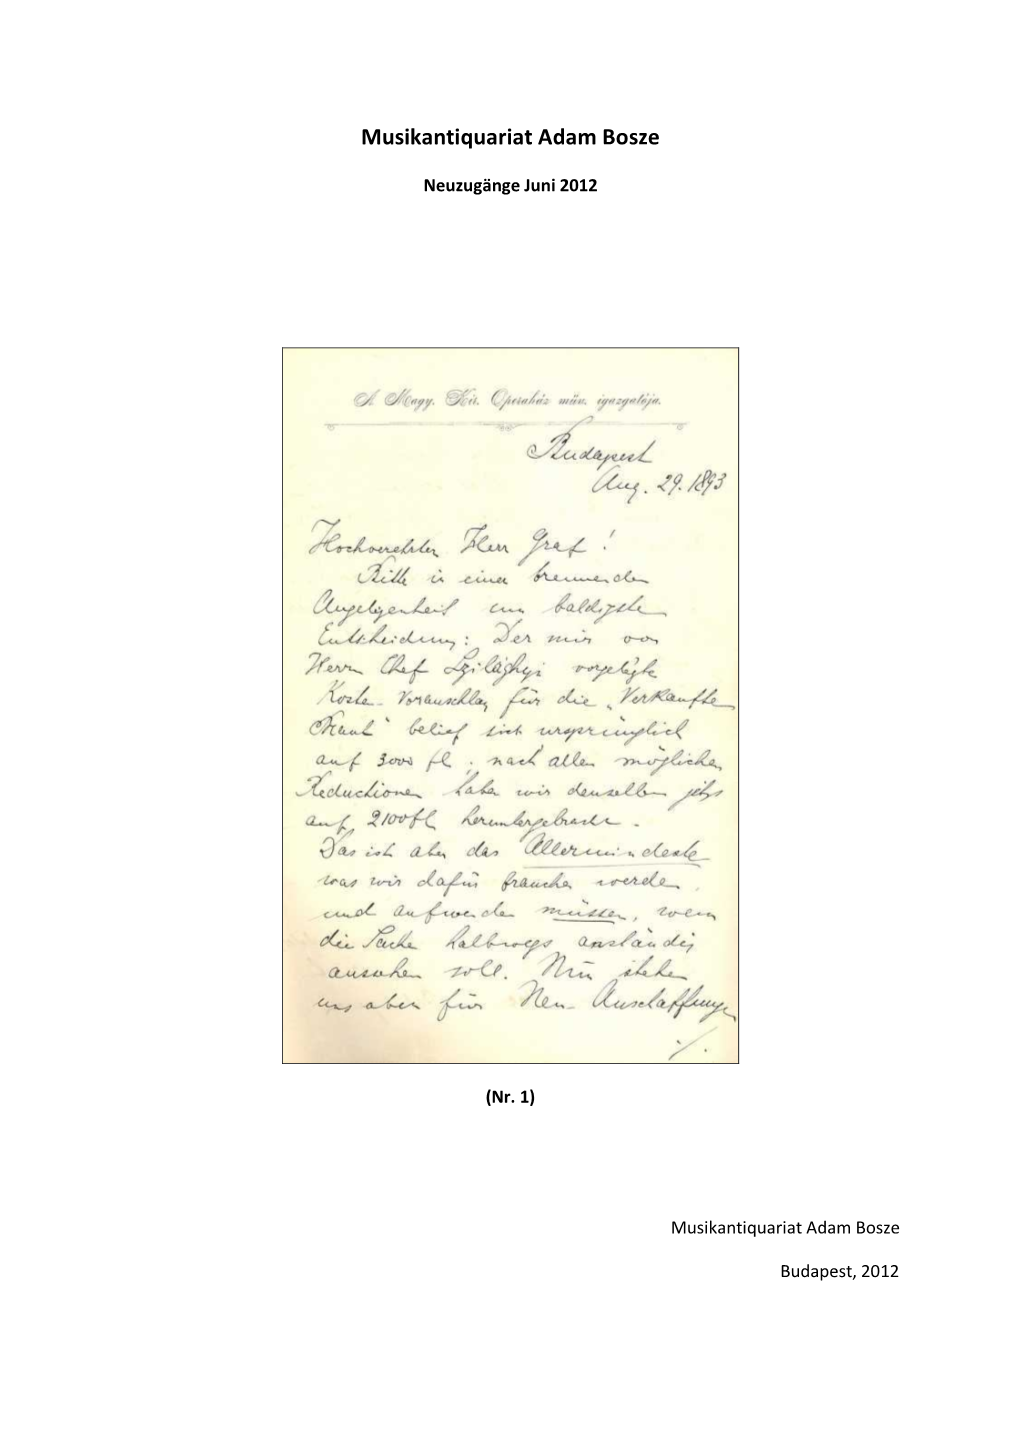 Musikantiquariat Adam Bosze
Neuzugänge Juni 2012
A Magy. Kir. Operaház műv. igazgatója.
Budapest
Aug. 29. 1893
Hochverehrter Herr Graf!
Bitte in einer brennenden
Angelegenheit um baldigste
Entscheidung: Der mir von
Herrn Chef Szilághyi vorgelegte
Kosten-Voranschlag für die „Verkaufte
Braut“ belief sich ursprünglich
auf 3000 fl, nach allen möglichen
Reductionen haben wir denselben jetzt
auf 2100 fl heruntergebracht.
Das ist aber das Allermindeste
was wir dafür brauchen werden,
und aufwenden müssen, wenn
die Sache halbwegs anständig
aussehen soll. Nun stehen
uns aber für Neu-Anschaffungen
./.
(Nr. 1)
Musikantiquariat Adam Bosze
Budapest, 2012